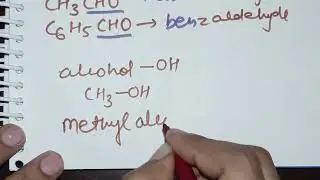 CH3 CHO →
C6H5 CHO → benzaldehyde
alcohol — OH
CH3 — OH
Methyl alc